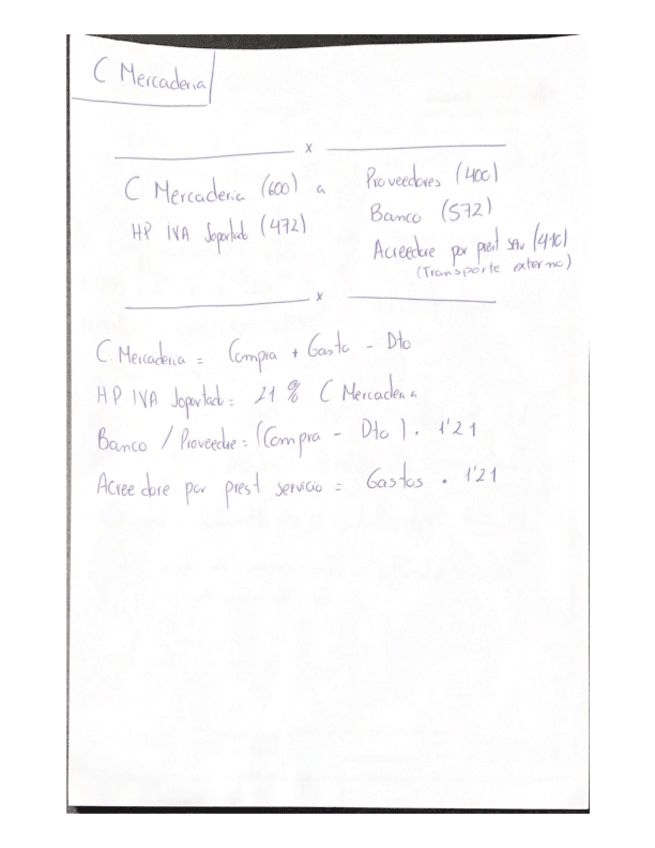 C Mercaderia
x
C Mercaderia (600) a Proveedores (400)
HP IVA Soportado (472) Banco (572)
Acreedore por prest serv (410)
(Transporte externo)
x
C Mercaderia = Compra + Gasto - Dto
HP IVA Soportado = 21 % C Mercaderia
Banco / Proveedre = (Compra - Dto) . 1'21
Acreedore por prest servicio = Gastos . 1'21